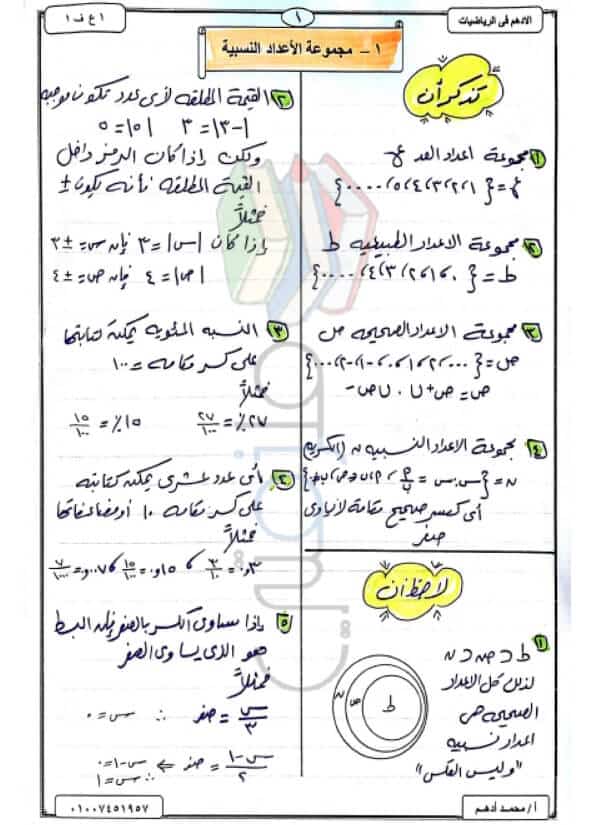 الادهم فى الرياضيات
١
١ ع ف ١
١ – مجموعة الأعداد النسبية
تذكر أن
١ مجموعة اعداد العد ع
ع = { ١، ٢، ٣، ٤، ٥، .... }
٢ مجموعة الاعداد الطبيعيه ط
ط = { ٠، ١، ٢، ٣، ٤، .... }
٣ مجموعة الاعداد الصحيحه ص
ص = { ... ٢، ١، ٠، -١، -٢، ... }
ص = ص+ ∪ ٠ ∪ ص-
٤ مجموعة الاعداد النسبيه ن (الكسريه
أى كسر صحيح مقامة لا يساوى
صفر
لاحظ أن
١ ط ⊂ ص ⊂ ن
لذلك كل الاعداد
الصحيحه هى
اعداد نسبيه
"وليس العكس"
ن ص ط
٢ القيمة المطلقه لأى عدد تكون موجبه
|-٣| = ٣ |٥| = ٥
ولكن إذا كان الرمز داخل
القيمة المطلقه فأنه يكون ±
فمثلاً
إذا كان |س| = ٣ فإن س = ± ٣
|ص| = ٤ فإن ص = ± ٤
٣ النسبه المئويه يمكن كتابتها
على كسر مقامه = ١٠٠
فمثلاً
٢٧٪ = ٢٧/١٠٠ ١٥٪ = ١٥/١٠٠
٤ أى عدد عشرى يمكن كتابته
على كسر مقامه ١٠ أو مضاعفاتها
فمثلاً
٠,٣ = ٣/١٠ ، ٠,١٥ = ١٥/١٠٠ ، ٠,٠٠٧ = ٧/١٠٠٠
٥ إذا ساوى الكسر بالصفر فإن البسط
هو الذى يساوى الصفر
فمثلاً
س/٣ = صفر ∴ س = ٠
س-١/٢ = صفر ⇐ س-١ = ٠
∴ س = ١
أ/ محمد أدهم
٠١٠٠٧٤٥١٩٥٧